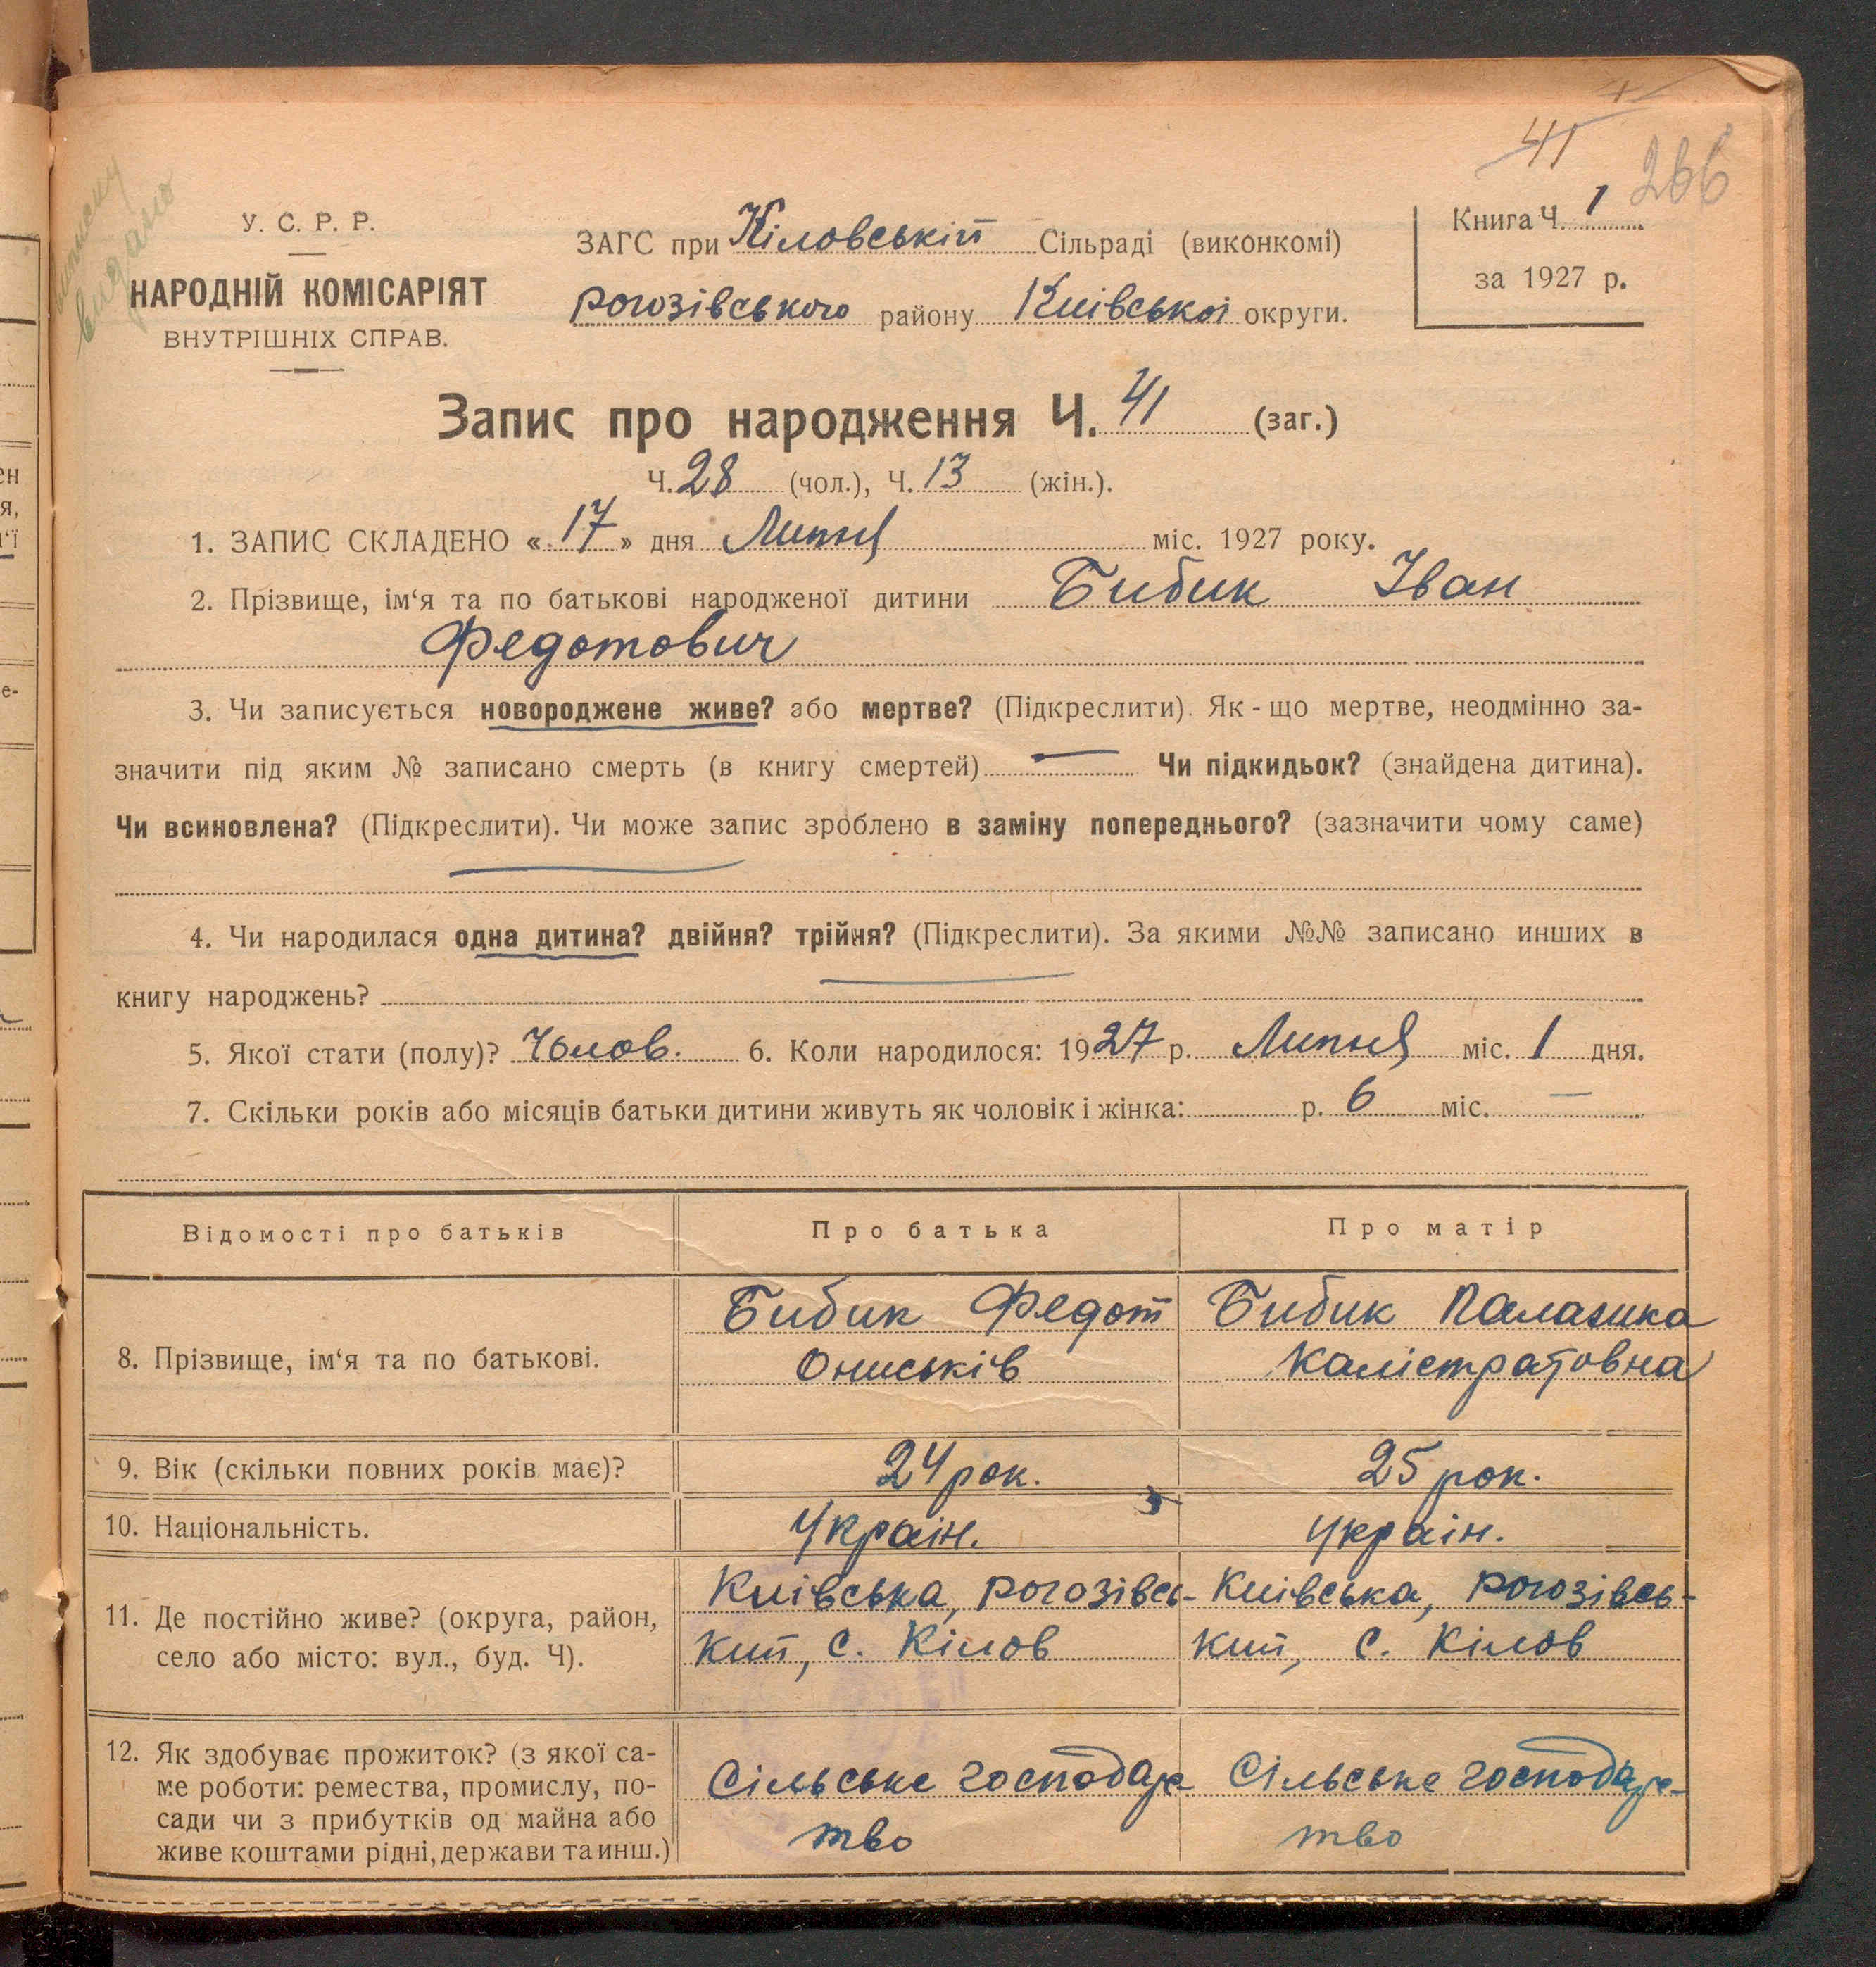 41
266
виписку
видано
У. С. Р. Р.
НАРОДНІЙ КОМІСАРІЯТ
ВНУТРІШНІХ СПРАВ.
ЗАГС при Кіловській Сільраді (виконкомі)
Рогозівського району Київської округи.
Книга Ч. 1
за 1927 р.
Запис про народження Ч. 41 (заг.)
Ч. 28 (чол.), Ч. 13 (жін.).
1. ЗАПИС СКЛАДЕНО « 17 » дня Липня міс. 1927 року.
2. Прізвище, ім‘я та по батькові народженої дитини Бибик Іван
Федотович
3. Чи записується новороджене живе? або мертве? (Підкреслити). Як-що мертве, неодмінно за-
значити під яким № записано смерть (в книгу смертей) — Чи підкидьок? (знайдена дитина).
Чи всиновлена? (Підкреслити). Чи може запис зроблено в заміну попереднього? (зазначити чому саме)
4. Чи народилася одна дитина? двійня? трійня? (Підкреслити). За якими №№ записано инших в
книгу народжень?
5. Якої стати (полу)? Чолов. 6. Коли народилося: 1927 р. Липня міс. 1 дня.
7. Скільки років або місяців батьки дитини живуть як чоловік і жінка: р. 6 міс. —
Відомості про батьків Про батька Про матір
8. Прізвище, ім‘я та по батькові.
Бибик Федот
Ониськів
Бибик Палажка
Калістратовна
9. Вік (скільки повних років має)? 24 рок. 25 рок.
10. Національність. Україн. Україн.
11. Де постійно живе? (округа, район,
село або місто: вул., буд. Ч).
Київська, Рогозівсь-
кий, с. Кілов
Київська, Рогозівсь-
кий, с. Кілов
12. Як здобуває прожиток? (з якої са-
ме роботи: ремества, промислу, по-
сади чи з прибутків од майна або
живе коштами рідні, держави та инш.)
Сільське господарс-
тво
Сільське господарс-
тво